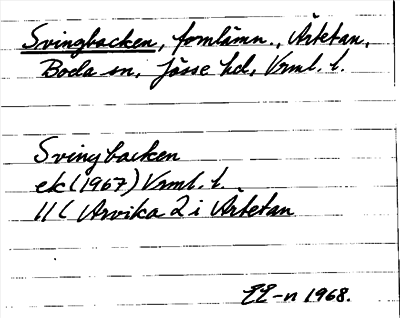 Svingbacken, fornlämn., Ärtetan,
Boda sn, Jösse hd, Vrml. l.
Svingbacken
ek (1967) Vrml. l.
11 C Arvika 2 i Ärtetan
-n 1968.